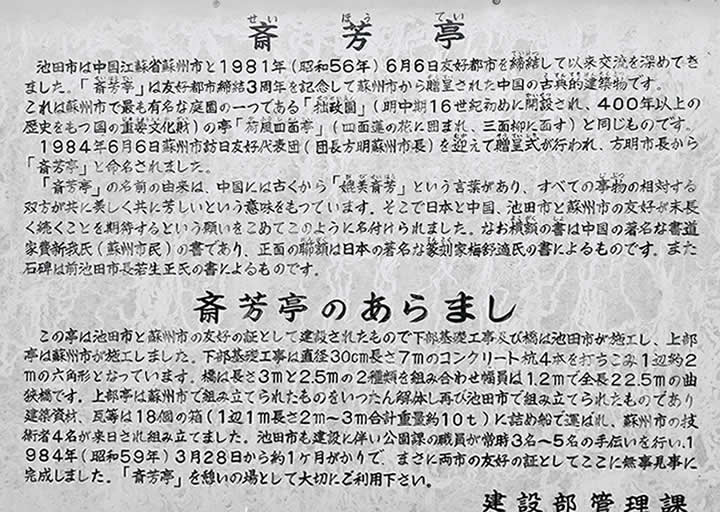 せい ほう てい
斉芳亭
池田市は中国江蘇省蘇州市と1981年(昭和56年)6月6日友好都市を締結して以来交流を深めてき
ました。「斉芳亭」は友好都市締結3周年を記念して蘇州市から贈呈された中国の古典的建築物です。
これは蘇州市で最も有名な庭園の一つである「拙政園」(明中期16世紀初めに開設され、400年以上の
歴史をもつ国の重要文化財)の亭「荷風四面亭」(四面蓮の花に囲まれ、三面柳に面す)と同じものです。
1984年6月6日蘇州市訪日友好代表団(団長方明蘇州市長)を迎えて贈呈式が行われ、方明市長から
「斉芳亭」と命名されました。
「斉芳亭」の名前の由来は、中国には古くから「媲美斉芳」という言葉があり、すべての事物の相対する
双方が共に美しく共に芳しいという意味をもっています。そこで日本と中国、池田市と蘇州市の友好が末長
く続くことを期待するという願いをこめてこのように名付けられました。なお横額の書は中国の著名な書道
家費新我氏(蘇州市民)の書であり、正面の聯額は日本の著名な篆刻家梅舒適氏の書によるものです。また
石碑は前池田市長若生正氏の書によるものです。
斉芳亭のあらまし
この亭は池田市と蘇州市の友好の証として建設されたもので下部基礎工事及び橋は池田市が施工し、上部
亭は蘇州市が施工しました。下部基礎工事は直径30cm長さ7mのコンクリート杭4本を打ちこみ1辺約2
mの六角形となっています。橋は長さ3mと2.5mの2種類を組み合わせ幅員は1.2mで全長22.5mの曲
狭橋です。上部亭は蘇州市で組み立てられたものをいったん解体し再び池田市で組み立てられたものであり
建築資材、瓦等は18個の箱(1辺1m長さ2m〜3m合計重量約10t)に詰め船で運ばれ、蘇州市の技
術者4名が来日され組み立てました。池田市も建設に伴い公園課の職員が常時3名〜5名の手伝いを行い、1
984年(昭和59年)3月28日から約1ケ月がかりで、まさに両市の友好の証としてここに無事見事に
完成しました。「斉芳亭」を憩いの場として大切にご利用下さい。
建設部管理課